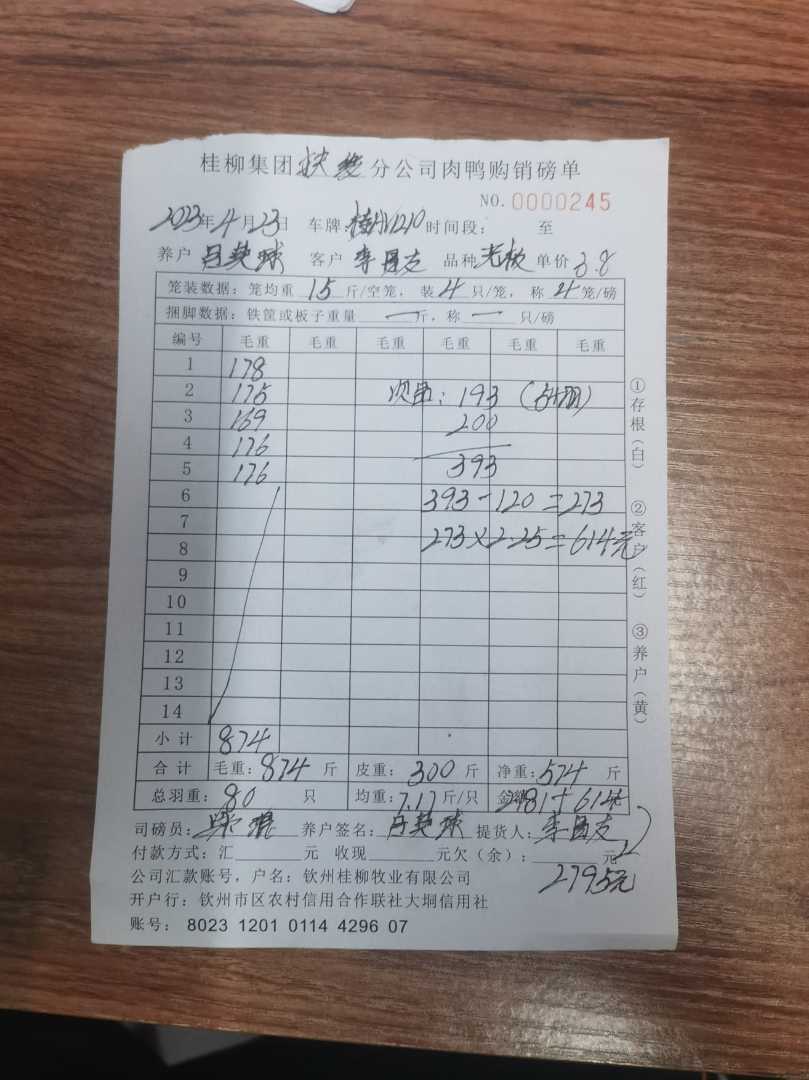 桂柳集团 分公司肉鸭购销磅单
NO. 0000245
2023年4月23日 车牌: 时间段: 至
养户 吕英球 客户 李 友 品种 单价 3.8
笼装数据: 笼均重 15 斤/空笼, 装 4 只/笼, 称 4 笼/磅
捆脚数据: 铁筐或板子重量 一 斤, 称 一 只/磅
编号 毛重 毛重 毛重 毛重 毛重 毛重
1 178
2 175 次品: 193
3 169 200
4 176 393
5 176
6 393-120=273
7
8 273×2.25=614元
9
10
11
12
13
14
小计 874
合计 毛重: 874 斤 皮重: 300 斤 净重: 574 斤
总羽重: 80 只 均重: 7.17 斤/只 金额 2181+614元
司磅员: 养户签名: 吕英球 提货人: 李 友
付款方式: 汇 元 收现 元欠(余): 元
2795元
公司汇款账号, 户名: 钦州桂柳牧业有限公司
开户行: 钦州市区农村信用合作联社大垌信用社
账号: 8023 1201 0114 4296 07
①存根(白)
②客户(红)
③养户(黄)